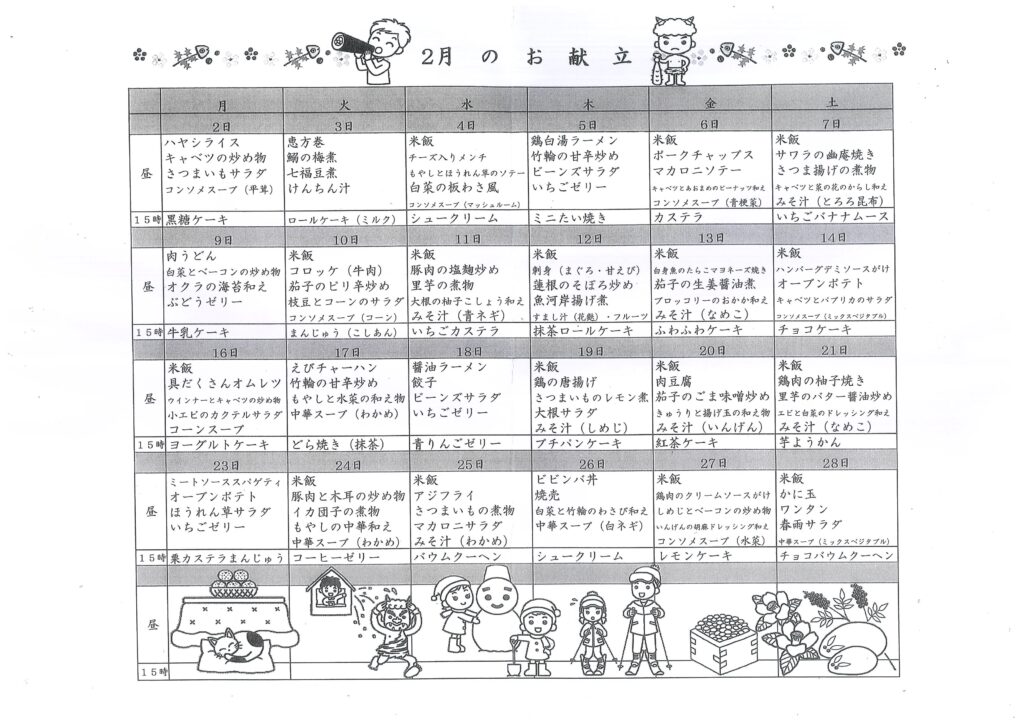 2月のお献立
月 火 水 木 金 土
2日 3日 4日 5日 6日 7日
昼
ハヤシライス
キャベツの炒め物
さつまいもサラダ
コンソメスープ（平茸）
恵方巻
鰯の梅煮
七福豆煮
けんちん汁
米飯
チーズ入りメンチ
もやしとほうれん草のソテー
白菜の板わさ風
コンソメスープ（マッシュルーム）
鶏白湯ラーメン
竹輪の甘辛炒め
ビーンズサラダ
いちごゼリー
米飯
ポークチャップス
マカロニソテー
キャベツとあおまめのピーナッツ和え
コンソメスープ（青梗菜）
米飯
サワラの幽庵焼き
さつま揚げの煮物
キャベツと菜の花のからし和え
みそ汁（とろろ昆布）
15時 黒糖ケーキ ロールケーキ（ミルク） シュークリーム ミニたい焼き カステラ いちごバナナムース
9日 10日 11日 12日 13日 14日
昼
肉うどん
白菜とベーコンの炒め物
オクラの海苔和え
ぶどうゼリー
米飯
コロッケ（牛肉）
茄子のピリ辛炒め
枝豆とコーンのサラダ
コンソメスープ（コーン）
米飯
豚肉の塩麹炒め
里芋の煮物
大根の柚子こしょう和え
みそ汁（青ネギ）
米飯
刺身（まぐろ・甘えび）
蓮根のそぼろ炒め
魚河岸揚げ煮
すまし汁（花麩）・フルーツ
米飯
白身魚のたらこマヨネーズ焼き
茄子の生姜醤油煮
ブロッコリーのおかか和え
みそ汁（なめこ）
米飯
ハンバーグデミソースがけ
オーブンポテト
キャベツとパプリカのサラダ
コンソメスープ（ミックスベジタブル）
15時 牛乳ケーキ まんじゅう（こしあん） いちごカステラ 抹茶ロールケーキ ふわふわケーキ チョコケーキ
16日 17日 18日 19日 20日 21日
昼
米飯
具だくさんオムレツ
ウインナーとキャベツの炒め物
小エビのカクテルサラダ
コーンスープ
えびチャーハン
竹輪の甘辛炒め
もやしと水菜の和え物
中華スープ（わかめ）
醤油ラーメン
餃子
ビーンズサラダ
いちごゼリー
米飯
鶏の唐揚げ
さつまいものレモン煮
大根サラダ
みそ汁（しめじ）
米飯
肉豆腐
茄子のごま味噌炒め
きゅうりと揚げ玉の和え物
みそ汁（いんげん）
米飯
鶏肉の柚子焼き
里芋のバター醤油炒め
エビと白菜のドレッシング和え
みそ汁（なめこ）
15時 ヨーグルトケーキ どら焼き（抹茶） 青りんごゼリー プチパンケーキ 紅茶ケーキ 芋ようかん
23日 24日 25日 26日 27日 28日
昼
ミートソーススパゲティ
オーブンポテト
ほうれん草サラダ
いちごゼリー
米飯
豚肉と木耳の炒め物
イカ団子の煮物
もやしの中華和え
中華スープ（わかめ）
米飯
アジフライ
さつまいもの煮物
マカロニサラダ
みそ汁（わかめ）
ビビンバ丼
焼売
白菜と竹輪のわさび和え
中華スープ（白ネギ）
米飯
鶏肉のクリームソースがけ
しめじとベーコンの炒め物
いんげんの胡麻ドレッシング和え
コンソメスープ（水菜）
米飯
かに玉
ワンタン
春雨サラダ
中華スープ（ミックスベジタブル）
15時 栗カステラまんじゅう コーヒーゼリー バウムクーヘン シュークリーム レモンケーキ チョコバウムクーヘン
昼
15時